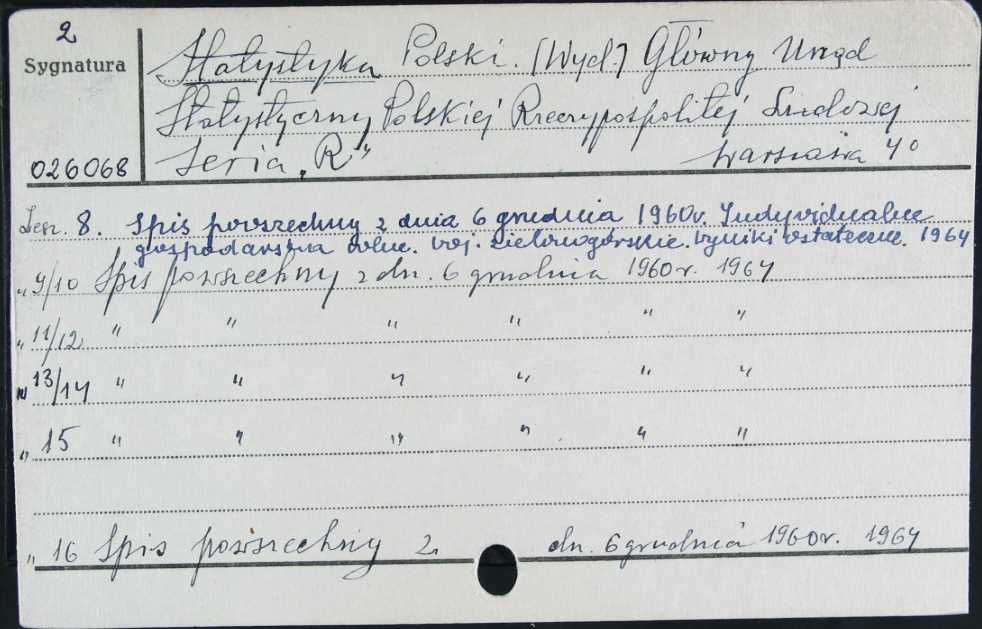 2
Sygnatura
026068
Statystyka Polski. [Wyd.] Główny Urząd
Statystyczny Polskiej Rzeczypospolitej Ludowej
Seria „R” Warszawa 4°
Zesz. 8. Spis powszechny z dnia 6 grudnia 1960r. Indywidualne
gospodarstwa rolne. woj. zielonogórskie. wyniki ostateczne. 1964
„ 9/10 Spis powszechny z dn. 6 grudnia 1960 r. 1964
„ 11/12 „ „ „ „ „ „
„ 13/14 „ „ „ „ „ „
„ 15 „ „ „ „ „ „
„ 16 Spis powszechny z dn. 6 grudnia 1960r. 1964